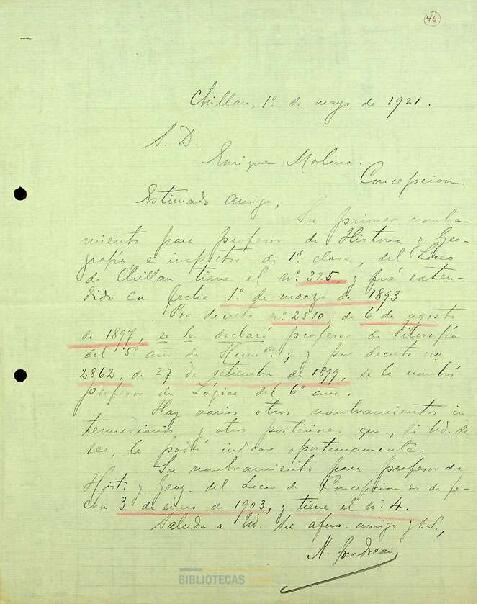 46
Chillan, 1º de mayo de 1921.
S. D.
Enrique Molina.
Concepcion
Estimado amigo,
Su primer nombra-
miento para profesor de Historia y Geo-
grafía e inspector de 1ª clase, del Liceo
de Chillan tiene el nº 225 y fué exten-
dido con fecha 1º de marzo de 1893
Por decreto nº 2510, de 6 de agosto
de 1897, se le declaró profesor de filosofía
del 5º año de Human., y por decreto nº
2862, de 27 de setiembre de 1899, se le nombró
profesor de Lógica del 6º año.
Hai varios otros nombramientos in-
termediarios y otros posteriores que, si Ud. de-
sea, le podré indicar oportunamente.
Su nombramiento para profesor de
Hist. y Geog. del Liceo de Concepcion es de fe-
cha 3 de enero de 1903, y tiene el nº 4.
Saluda a Ud. su afmo. amigo y S. S.,
BIBLIOTECAS